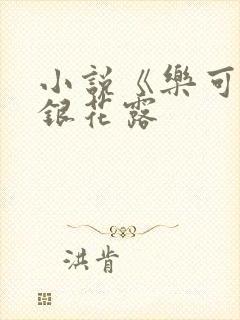 小說《樂可
銀花露
洪肯